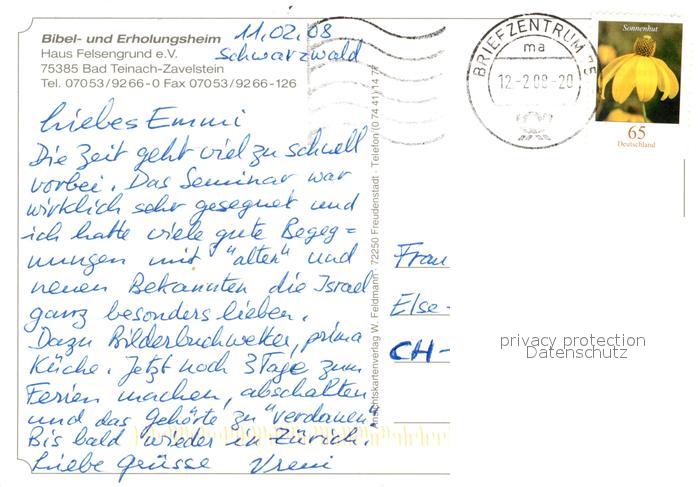 Bibel- und Erholungsheim
Haus Felsengrund e.V.
75385 Bad Teinach-Zavelstein
Tel. 07053/9266-0 Fax 07053/9266-126
11.02.08
Schwarzwald
Liebes Emmi
Die Zeit geht viel zu schnell
vorbei. Das Seminar war
wirklich sehr gesegnet und
ich hatte viele gute Begeg=
nungen mit "alten" und
neuen Bekannten die Israel
ganz besonders lieben.
Dazu Bilderbuchwetter, prima
Küche. Jetzt noch 3 Tage zum
Ferien machen, abschalten
und das Gehörte zu "verdauen"
Bis bald wieder in Zürich.
Liebe Grüsse Vreni
Ansichtskartenverlag W. Feldmann · 72250 Freudenstadt · Telefon (0 74 41) 14 77
BRIEFZENTRUM 75
ma
12.-2.08-20
Sonnenhut
65
Deutschland
Frau
Else-
CH-
privacy protection
Datenschutz